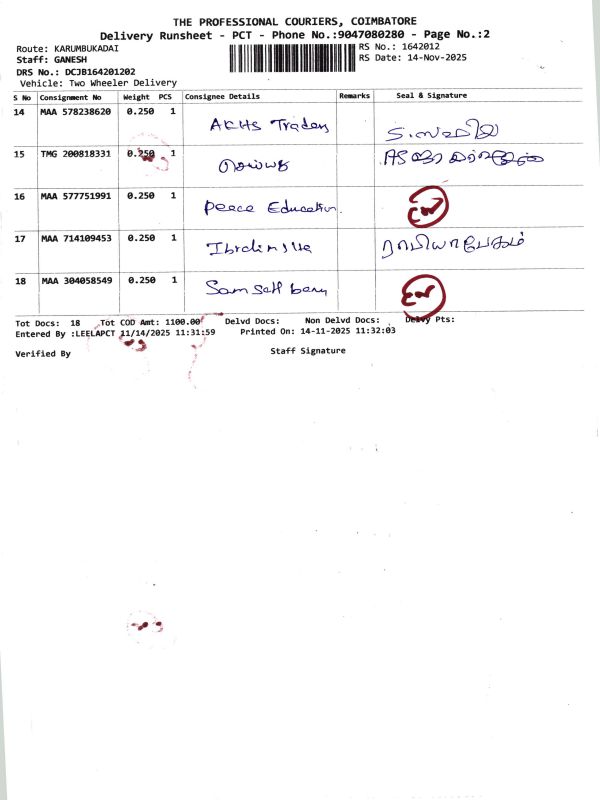 THE PROFESSIONAL COURIERS, COIMBATORE
Delivery Runsheet - PCT - Phone No.:9047080280 - Page No.:2
Route: KARUMBUKADAI RS No.: 1642012
Staff: GANESH RS Date: 14-Nov-2025
DRS No.: DCJB164201202
Vehicle: Two Wheeler Delivery
S No Consignment No Weight PCS Consignee Details Remarks Seal & Signature
14 MAA 578238620 0.250 1 AKHS Traders
15 TMG 200818331 0.250 1
16 MAA 577751991 0.250 1 Peace Education.
17 MAA 714109453 0.250 1
18 MAA 304058549 0.250 1
Tot Docs: 18 Tot COD Amt: 1100.00 Delvd Docs: Non Delvd Docs: Delvy Pts:
Entered By :LEELAPCT 11/14/2025 11:31:59 Printed On: 14-11-2025 11:32:03
Verified By Staff Signature